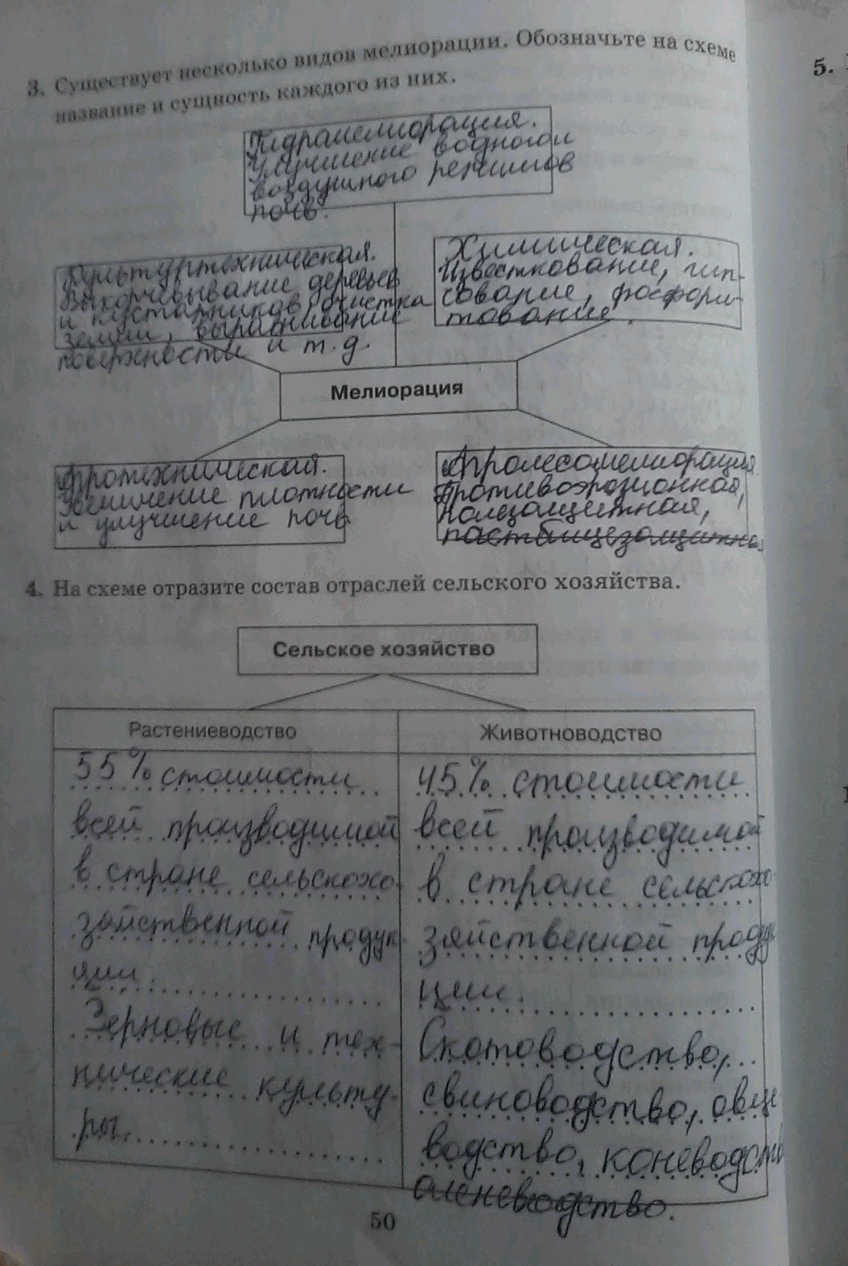 3. Существует несколько видов мелиорации. Обозначьте на схеме
название и сущность каждого из них.
Гидромелиорация.
Улучшение водного и
воздушного режимов
почв.
Культуртехническая.
Выкорчевывание деревьев
и кустарников, очистка
земли, выравнивание
поверхности и т.д.
Химическая.
Известкование, гип-
сование, фосфори-
тование.
Мелиорация
Агротехническая.
Увеличение плотности
и улучшение почв
Агролесомелиорация.
Противоэрозионная,
полезащитная,
пастбищезащитная
4. На схеме отразите состав отраслей сельского хозяйства.
Сельское хозяйство
Растениеводство
55% стоимости
всей производимой
в стране сельскохо
зяйственной продук
ции.
Зерновые и тех-
нические культу-
ры.
Животноводство
45% стоимости
всей производимой
в стране сельскохо
зяйственной продук
ции.
Скотоводство,
свиноводство, овце
водство, коневодств
оленеводство.
50
5.